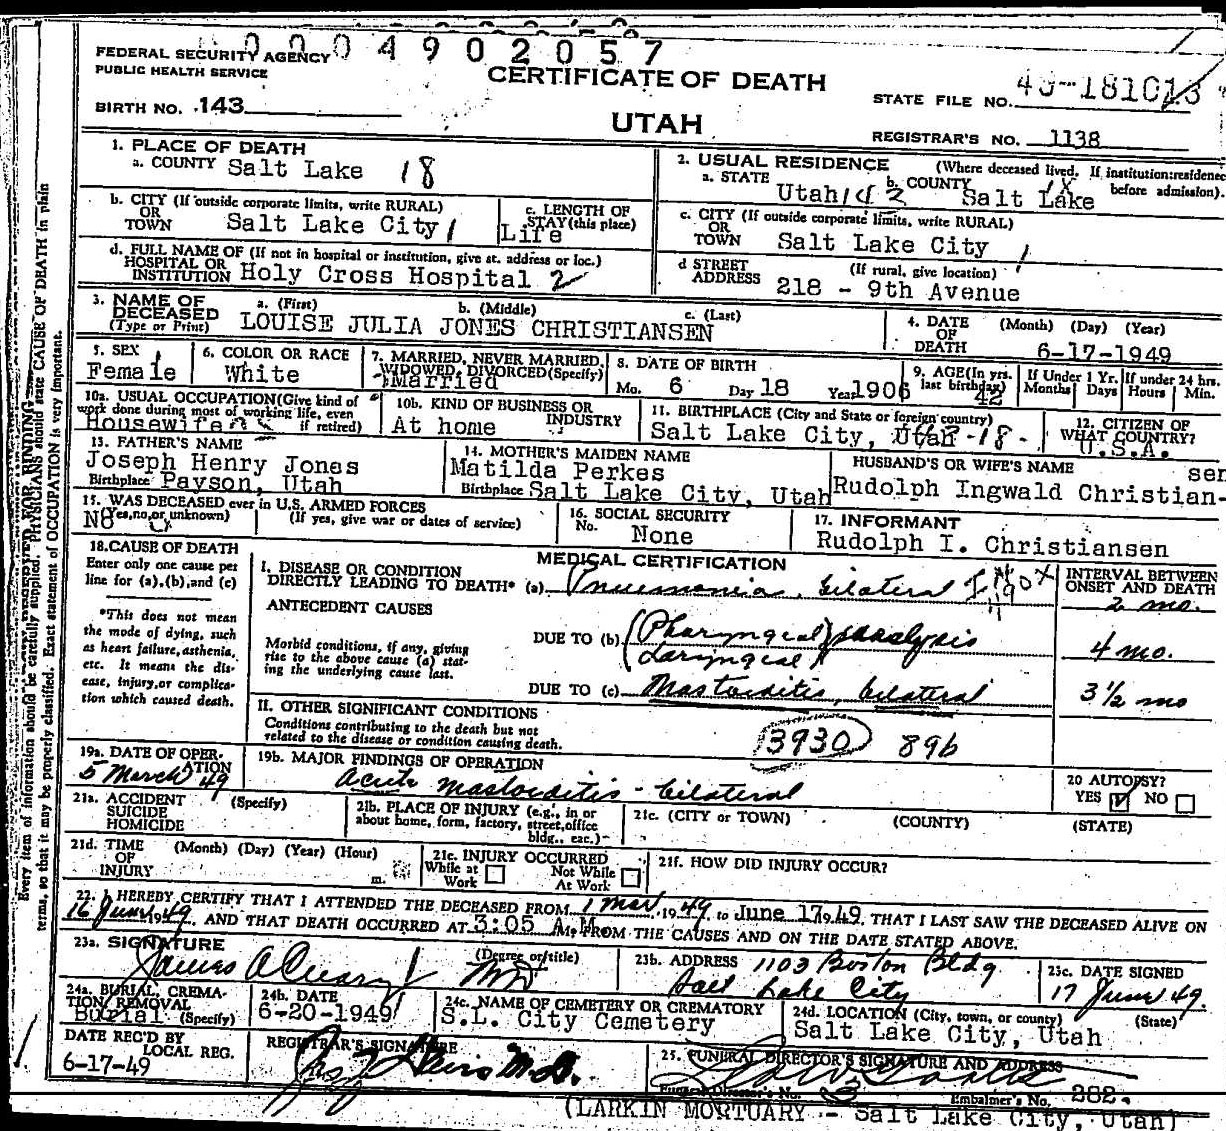 0004902057
FEDERAL SECURITY AGENCY
PUBLIC HEALTH SERVICE
CERTIFICATE OF DEATH
STATE FILE NO. 49-181013
BIRTH NO. 143
UTAH
REGISTRAR'S NO. 1138
1. PLACE OF DEATH
a. COUNTY Salt Lake 18
2. USUAL RESIDENCE (Where deceased lived. If institution:residence before admission).
a. STATE Utah b. COUNTY Salt Lake
b. CITY (If outside corporate limits, write RURAL) OR TOWN Salt Lake City
c. LENGTH OF STAY (this place) Life
c. CITY (If outside corporate limits, write RURAL) OR TOWN Salt Lake City
d. FULL NAME OF (If not in hospital or institution, give st. address or loc.) HOSPITAL OR INSTITUTION Holy Cross Hospital 2
d STREET ADDRESS (If rural, give location) 218 - 9th Avenue
3. NAME OF DECEASED (Type or Print) a. (First) b. (Middle) c. (Last)
LOUISE JULIA JONES CHRISTIANSEN
4. DATE OF DEATH (Month) (Day) (Year)
6-17-1949
5. SEX Female
6. COLOR OR RACE White
7. MARRIED, NEVER MARRIED, WIDOWED, DIVORCED (Specify) Married
8. DATE OF BIRTH Mo. 6 Day 18 Year 1906
9. AGE (In yrs. last birthday) 42
If Under 1 Yr. Months Days
If under 24 hrs. Hours Min.
10a. USUAL OCCUPATION (Give kind of work done during most of working life, even if retired) Housewife
10b. KIND OF BUSINESS OR INDUSTRY At home
11. BIRTHPLACE (City and State or foreign country) Salt Lake City, Utah
12. CITIZEN OF WHAT COUNTRY? U.S.A.
13. FATHER'S NAME
Joseph Henry Jones
Birthplace Payson, Utah
14. MOTHER'S MAIDEN NAME
Matilda Perkes
Birthplace Salt Lake City, Utah
HUSBAND'S OR WIFE'S NAME
Rudolph Ingwald Christian-sen
15. WAS DECEASED ever in U.S. ARMED FORCES
(Yes, no, or unknown) (If yes, give war or dates of service)
No
16. SOCIAL SECURITY No. None
17. INFORMANT
Rudolph I. Christiansen
18. CAUSE OF DEATH
Enter only one cause per line for (a), (b), and (c)
*This does not mean the mode of dying, such as heart failure, asthenia, etc. It means the disease, injury, or complication which caused death.
MEDICAL CERTIFICATION
INTERVAL BETWEEN ONSET AND DEATH
I. DISEASE OR CONDITION DIRECTLY LEADING TO DEATH* (a) Pneumonia, bilateral
2 mo.
ANTECEDENT CAUSES
Morbid conditions, if any, giving rise to the above cause (a) stating the underlying cause last.
DUE TO (b) (Pharyngeal) paralysis
(Laryngeal)
4 mo.
DUE TO (c) Mastoiditis, bilateral
3 1/2 mo
II. OTHER SIGNIFICANT CONDITIONS
Conditions contributing to the death but not related to the disease or condition causing death.
3930 89b
19a. DATE OF OPERATION 5 March 49
19b. MAJOR FINDINGS OF OPERATION
Acute mastoiditis - bilateral
20 AUTOPSY? YES NO
21a. ACCIDENT SUICIDE HOMICIDE (Specify)
21b. PLACE OF INJURY (e.g., in or about home, form, factory, street, office bldg., eac.)
21c. (CITY or TOWN) (COUNTY) (STATE)
21d. TIME OF INJURY (Month) (Day) (Year) (Hour) m.
21e. INJURY OCCURRED While at Work Not While At Work
21f. HOW DID INJURY OCCUR?
22. I HEREBY CERTIFY THAT I ATTENDED THE DECEASED FROM 1 Mar, 1949, to June 17 1949, THAT I LAST SAW THE DECEASED ALIVE ON
16 June 1949, AND THAT DEATH OCCURRED AT 3:05 A M., FROM THE CAUSES AND ON THE DATE STATED ABOVE.
23a. SIGNATURE (Degree or title)
James A Cleary MD
23b. ADDRESS 1103 Boston Bldg
Salt Lake City
23c. DATE SIGNED
17 June 49.
24a. BURIAL, CREMATION, REMOVAL (Specify) Burial
24b. DATE 6-20-1949
24c. NAME OF CEMETERY OR CREMATORY
S.L. City Cemetery
24d. LOCATION (City, town, or county) (State)
Salt Lake City, Utah
DATE REC'D BY LOCAL REG.
6-17-49
REGISTRAR'S SIGNATURE
25. FUNERAL DIRECTOR'S SIGNATURE AND ADDRESS
Funeral Director's No. Embalmer's No. 282.
(LARKIN MORTUARY - Salt Lake City, Utah)
Every item of information should be carefully supplied. PHYSICIANS should state CAUSE OF DEATH in plain
terms, so that it may be properly classified. Exact statement of OCCUPATION is very important.